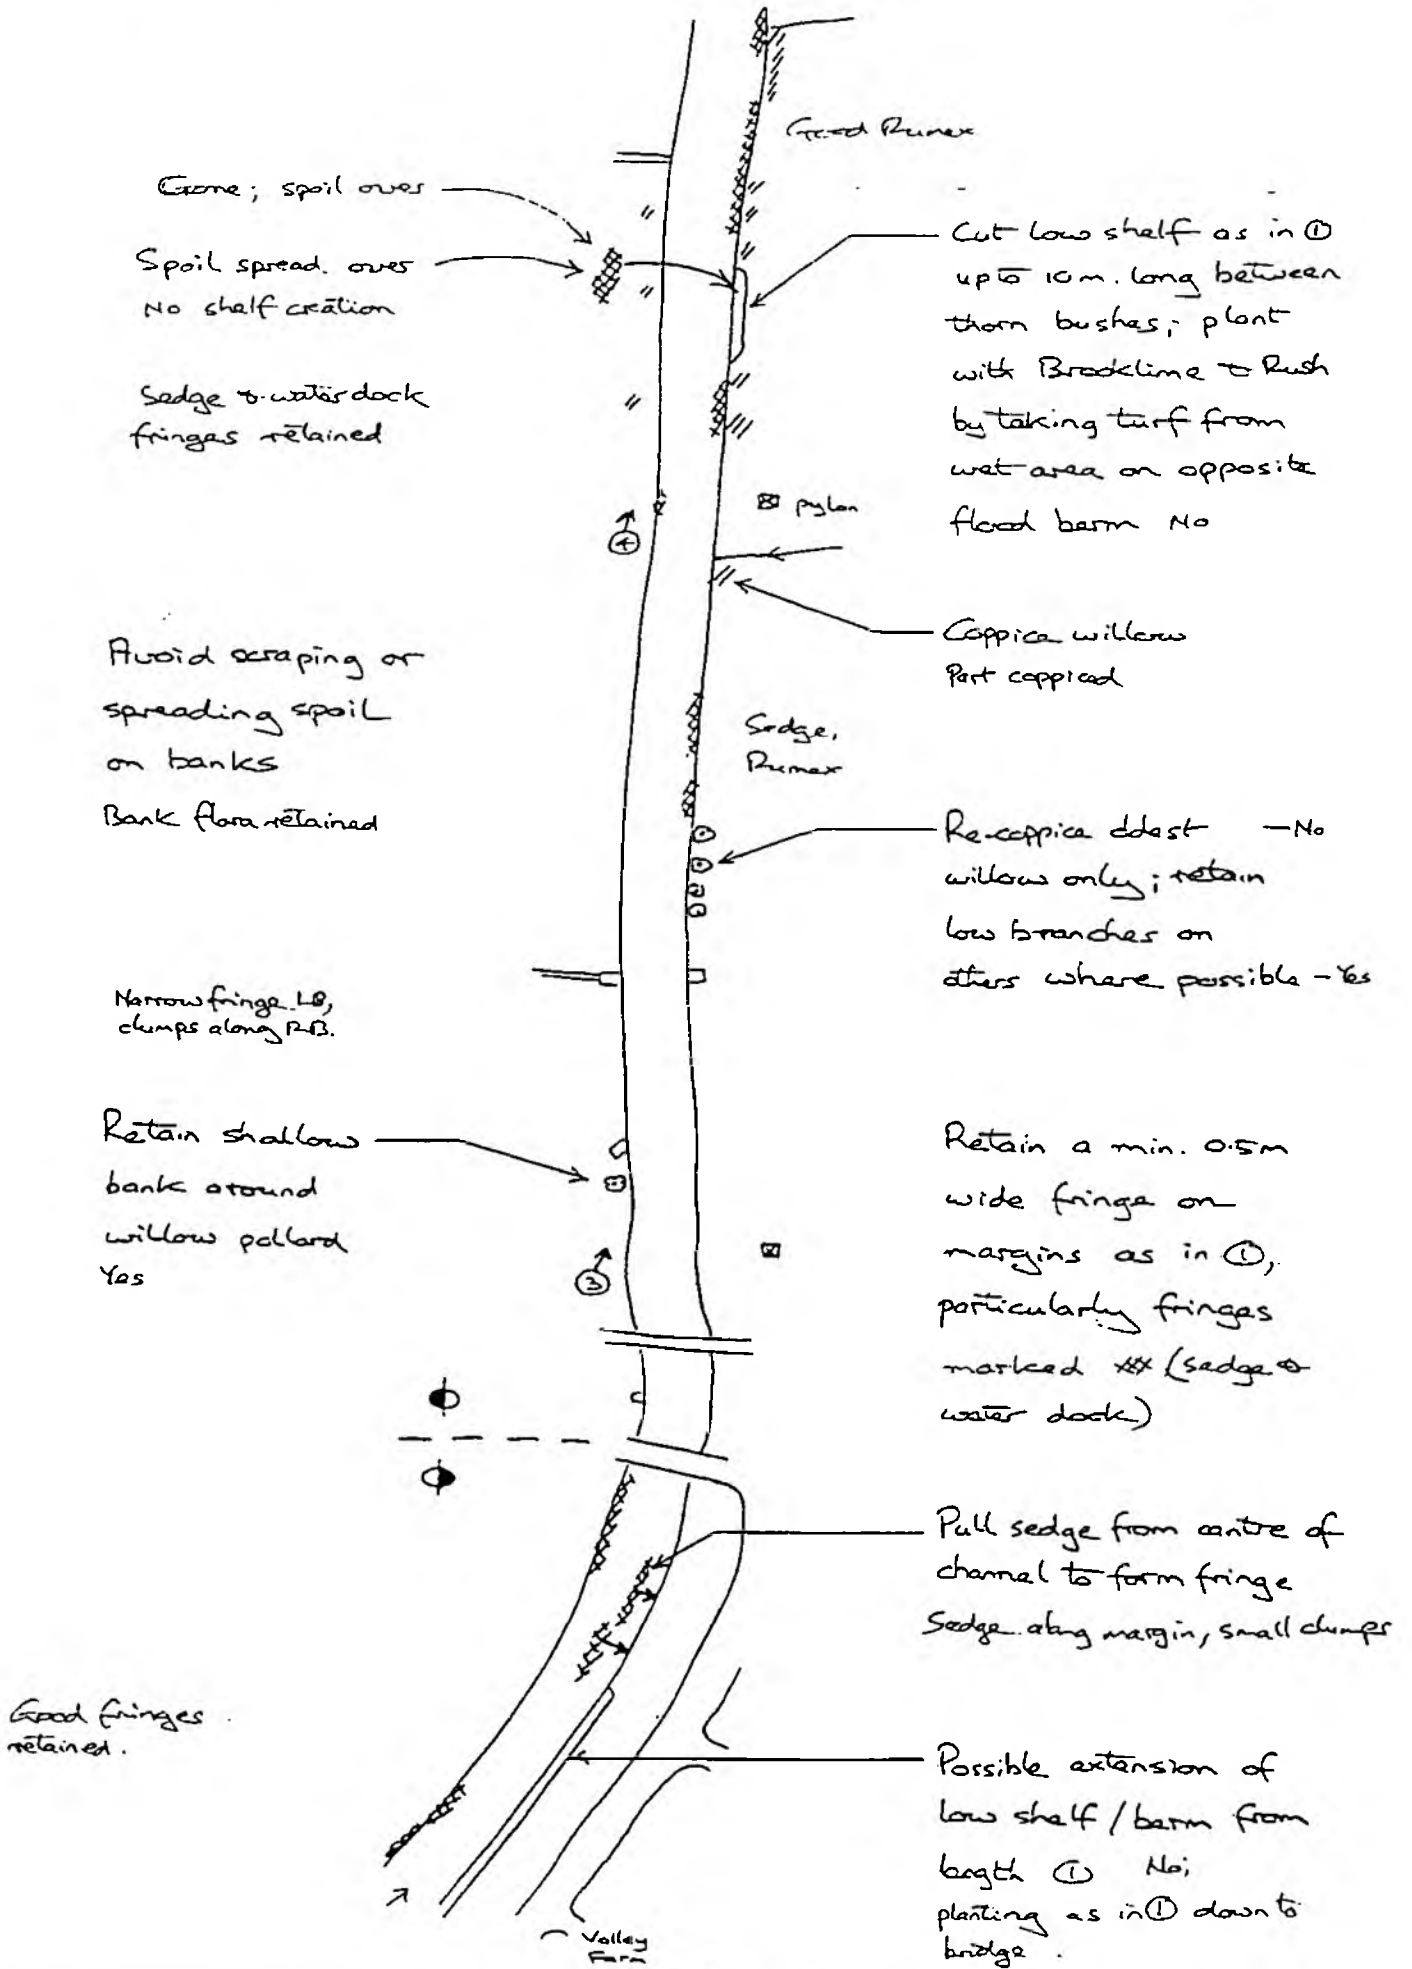 Good Rumex
Gone; spoil over
Spoil spread over
No shelf creation
Sedge & water dock
fringes retained
Cut low shelf as in ①
up to 10m. long between
thorn bushes; plant
with Brooklime & Rush
by taking turf from
wet area on opposite
flood berm No
pylon
④
Coppice willow
Part coppiced
Avoid scraping or
spreading spoil
on banks
Bank flora retained
Sedge,
Rumex
Re-coppice oldest - No
willow only; retain
low branches on
others where possible - Yes
Narrow fringe LB,
clumps along RB.
Retain shallow
bank around
willow pollard
Yes
③
Retain a min. 0.5m
wide fringe on
margins as in ①,
particularly fringes
marked xxx (sedge &
water dock)
Pull sedge from centre of
channel to form fringe
Sedge along margin, small clumps
Good fringes
retained.
Possible extension of
low shelf / berm from
length ① No;
planting as in ① down to
bridge.
Valley
Farm